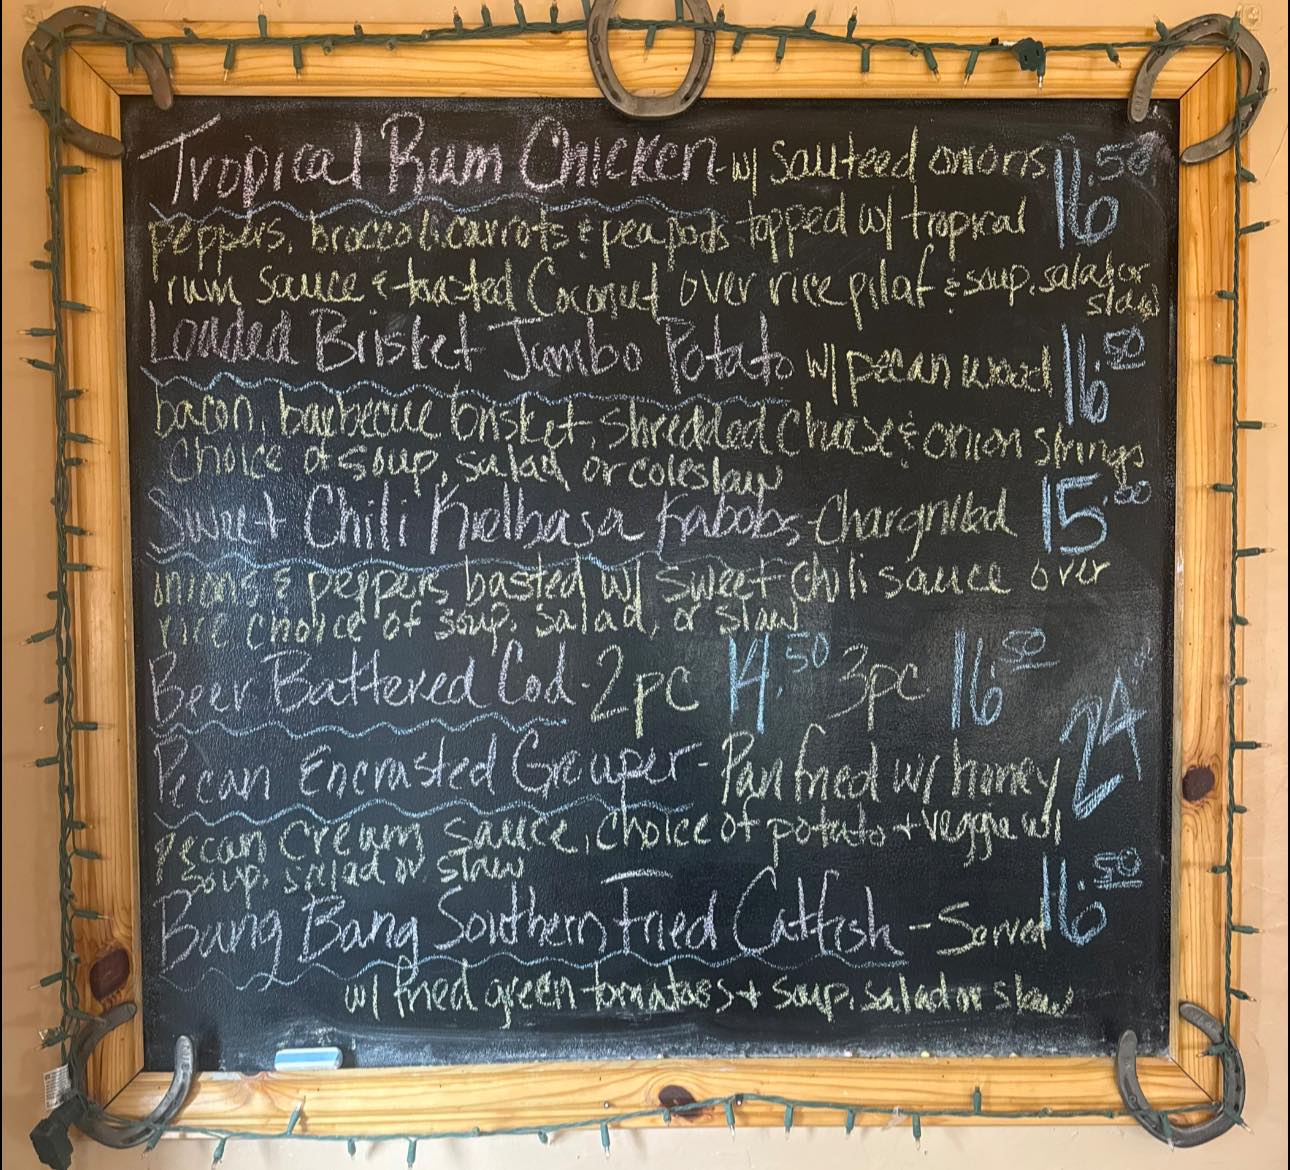 Tropical Rum Chicken - w/ Sauteed onions 16.50
peppers, broccoli, carrots & pea pods topped w/ tropical
rum sauce & toasted Coconut over rice pilaf & soup, salad or
slaw
Loaded Brisket Jumbo Potato w/ pecan wood 16.50
bacon, barbecue brisket, shredded cheese & onion strings
Choice of soup, salad or coleslaw
Sweet Chili Kielbasa Kabobs - Chargrilled 15.00
onions & peppers basted w/ sweet chili sauce over
rice choice of soup, salad, or slaw
Beer Battered Cod - 2pc 14.50 3pc 16.50
Pecan Encrusted Grouper - Pan fried w/ honey 24
pecan cream sauce, choice of potato + veggie w/
soup, salad or slaw
Bang Bang Southern Fried Catfish - Served 16.50
w/ fried green tomatoes + soup, salad or slaw